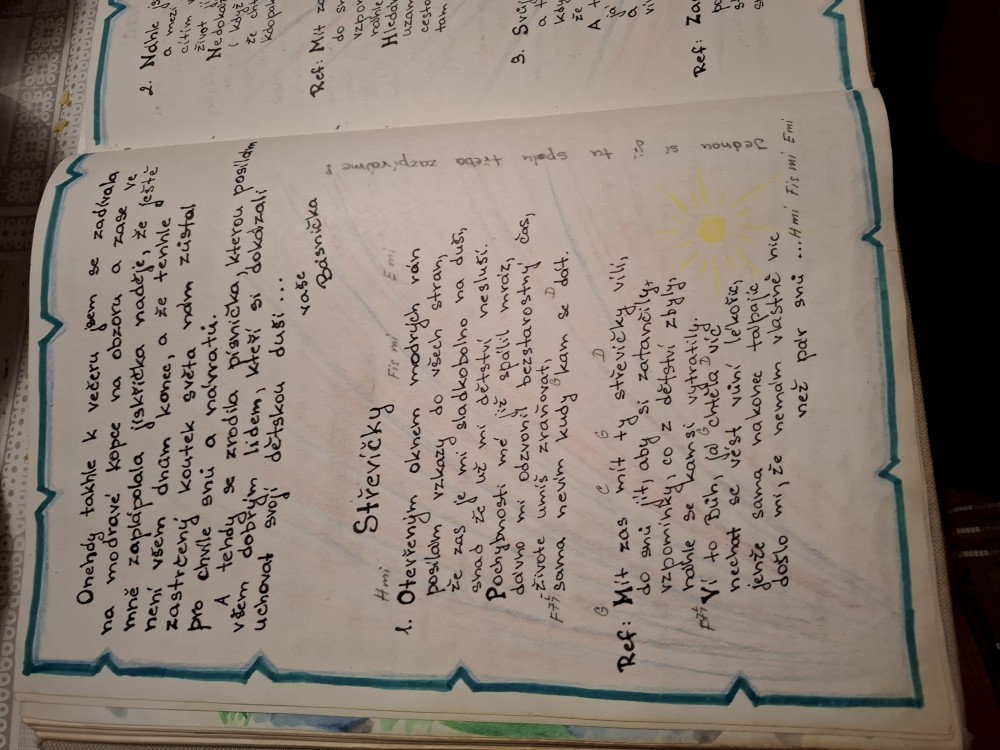 Onehdy takhle k večeru jsem se zadívala
na modravé kopce na obzoru a zase ve
mně zaplápolala jiskřička naděje, že ještě
není všem dnám konec, a že tenhle
zastrčený koutek světa nám zůstal
pro chvíle snů a návratů.
A tehdy se zrodila písnička, kterou posílám
všem dobrým lidem, kteří si dokázali
uchovat svoji dětskou duši...
vaše
Básnička
Střevíčky
Hmi Fis mi Emi
1. Otevřeným oknem modrých rán
posílám vzkazy do všech stran,
že zas je mi sladkobolno na duši,
snad že už mi dětství nesluší.
Pochybnosti mé již spálil mráz,
dávno mi odzvonil bezstarostný čas,
živote umíš zraňovat,
G D
sama nevím kudy kam se dát.
G C G D
Ref: Mít zas mít ty střevíčky víl,
do snů jít, aby si zatančily,
vzpomínky, co z dětství zbyly,
náhle se kamsi vytratily.
G D
Ví to Bůh, já chtěla víc
nechat se vést vůní lékořic,
jenže sama nakonec talpajíc
došlo mi, že nemám vlastně nic
než pár snů ... Hmi Fis mi Emi
Jednou si ji tu spolu třeba zazpíváme!
2. Náhle
a mezi
cítím
život
Nedoká
(když
že
kdopak
Ref: Mít za
do sn
vzpom
náhle
Hledá
uzam
cesto
tam
3. Svůj
a t
kdy
že
A t
já
a
Ref: Za